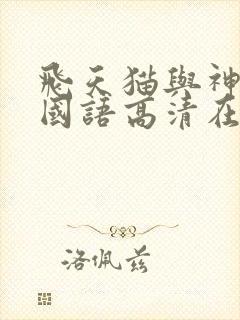 飛天猫與神
國語高清在
洛佩兹